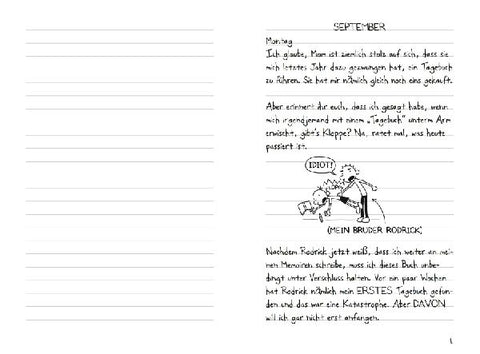 SEPTEMBER
Montag
Ich glaube, Mom ist ziemlich stolz auf sich, dass sie
mich letztes Jahr dazu gezwungen hat, ein Tagebuch
zu führen. Sie hat mir nämlich gleich noch eins gekauft.
Aber erinnert ihr euch, dass ich gesagt habe, wenn
mich irgendjemand mit einem „Tagebuch“ unterm Arm
erwischt, gibt's Kloppe? Na, ratet mal, was heute
passiert ist.
IDIOT!
(MEIN BRUDER RODRICK)
Nachdem Rodrick jetzt weiß, dass ich weiter an mei-
nen Memoiren schreibe, muss ich dieses Buch unbe-
dingt unter Verschluss halten. Vor ein paar Wochen
hat Rodrick nämlich mein ERSTES Tagebuch gefun-
den und das war eine Katastrophe. Aber DAVON
will ich gar nicht erst anfangen.
1